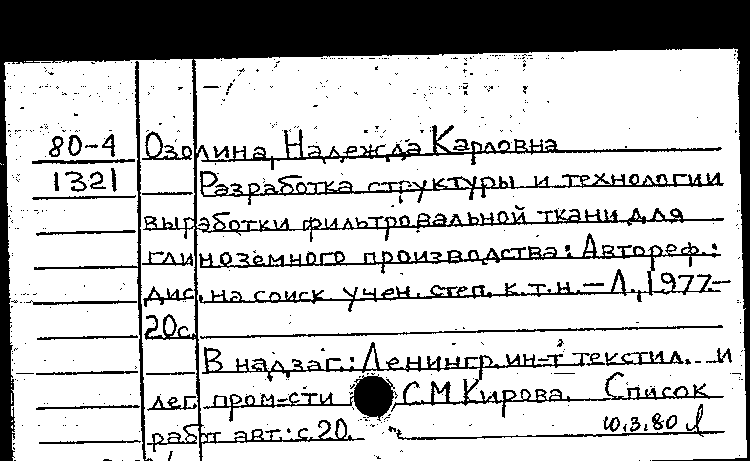 80-4 Озолина, Надежда Карловна
1321 Разработка структуры и технологии
выработки фильтровальной ткани для
глиноземного производства: Автореф.:
дис. на соиск учен. степ. к.т.н. – Л., 1977.–
20с.
В надзаг.: Ленингр. ин-т текстил. и
лег. пром-сти С.М.Кирова. Список
работ авт.: с.20. 10.3.80